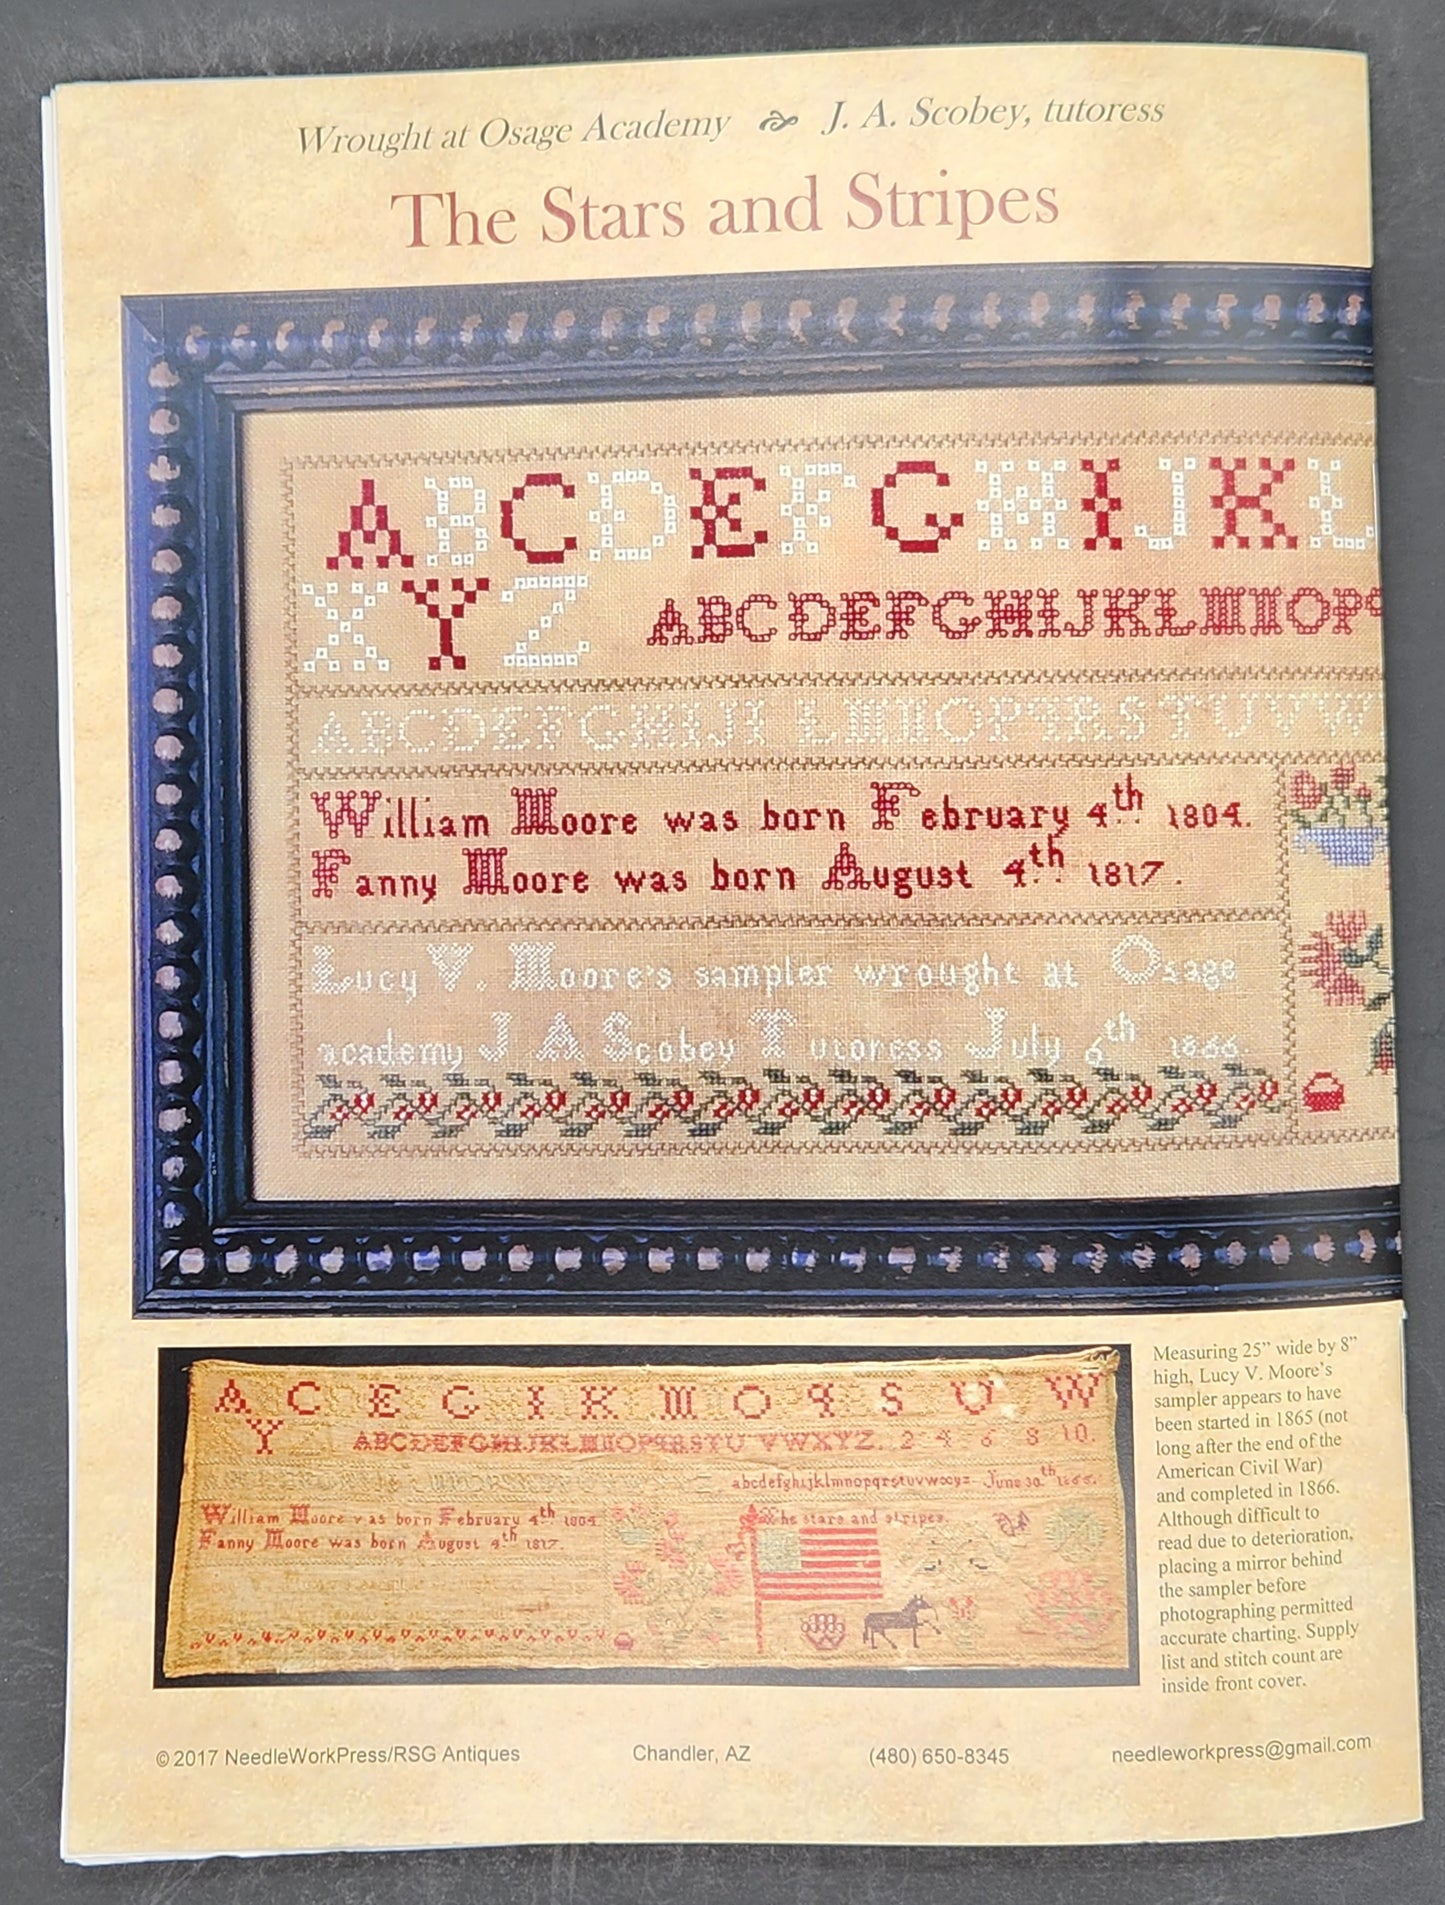 Wrought at Osage Academy J. A. Scobey, tutoress
The Stars and Stripes
A B C D E F G H I J K L
X Y Z A B C D E F G H I J K L M N O P Q
A B C D E F G H I J I L M N O P Q R S T U V W
William Moore was born February 4th 1804.
Fanny Moore was born August 4th 1817.
Lucy V. Moore's sampler wrought at Osage
academy J A Scobey Tutoress July 6th 1866
A C E G I K M O Q S U W
Y Z ABCDEFGHIJKLMNOPQRSTU VWXYZ. 2 4 6 8 10.
abcdefghijklmnopqrstuvwxyz June 30th 1865.
William Moore was born February 4th 1804
Fanny Moore was born August 4th 1817.
The stars and stripes.
Measuring 25" wide by 8"
high, Lucy V. Moore's
sampler appears to have
been started in 1865 (not
long after the end of the
American Civil War)
and completed in 1866.
Although difficult to
read due to deterioration,
placing a mirror behind
the sampler before
photographing permitted
accurate charting. Supply
list and stitch count are
inside front cover.
© 2017 NeedleWorkPress/RSG Antiques Chandler, AZ (480) 650-8345 needleworkpress@gmail.com